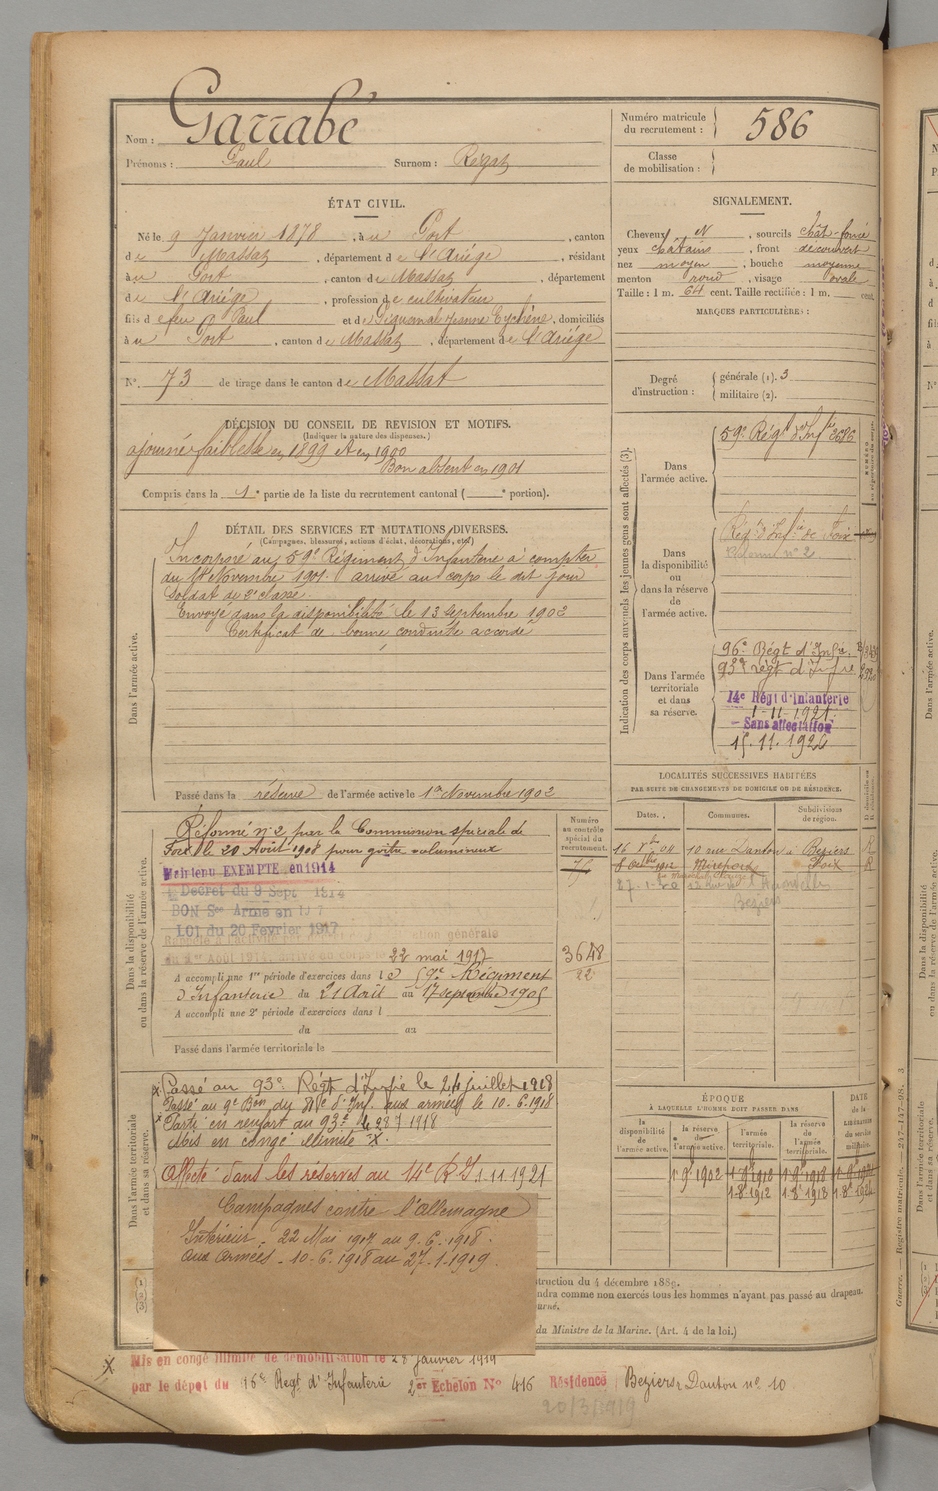 Nom : Garrabé
Prénoms : Paul Surnom : Regat
Numéro matricule du recrutement : 586
Classe de mobilisation :
ÉTAT CIVIL.
Né le 9 Janvier 1878, à u Port, canton
de Massat, département de l'Ariége, résidant
à u Port, canton de Massat, département
de l'Ariége, profession de cultivateur
fils de feu Paul et de Piquemal Jeanne Eychène, domiciliés
à u Port, canton de Massat, département de l'Ariége
N° 73 de tirage dans le canton de Massat
SIGNALEMENT.
Cheveux N, sourcils chât-foncé
yeux châtains, front découvert
nez moyen, bouche moyenne
menton rond, visage ovale
Taille : 1 m. 64 cent. Taille rectifiée : 1 m. cent.
MARQUES PARTICULIÈRES :
Degré d'instruction : générale (1). 3
militaire (2).
DÉCISION DU CONSEIL DE REVISION ET MOTIFS.
(Indiquer la nature des dispenses.)
ajourné faiblesse en 1899 et en 1900
Bon absent en 1901
Compris dans la 1e partie de la liste du recrutement cantonal ( e portion).
DÉTAIL DES SERVICES ET MUTATIONS DIVERSES.
(Campagnes, blessures, actions d'éclat, décorations, etc.)
Dans l'armée active.
Incorporé au 59e Régiment d'Infanterie à compter
du 14 Novembre 1901. arrivé au corps le dit jour
Soldat de 2e classe.
Envoyé dans la disponibilité le 13 Septembre 1902
Certificat de bonne conduite accordé
Passé dans la réserve de l'armée active le 1er Novembre 1902
Indication des corps auxquels les jeunes gens sont affectés (3).
Dans l'armée active.
59e Régt d'Infie 3686
Dans la disponibilité ou dans la réserve de l'armée active.
Régt d'Infie de Foix
Dans l'armée territoriale et dans sa réserve.
96e Régt d'Infie
93e régt d'Infie
14e Régt d'Infanterie
1-11-1921
Sans affectation
15.11.1926
LOCALITÉS SUCCESSIVES HABITÉES
PAR SUITE DE CHANGEMENTS DE DOMICILE OU DE RÉSIDENCE.
Dates. Communes. Subdivisions de région.
16 8bre 04 10 rue Danton à Béziers R
8 Octbre 1912 Mirepoix Foix R
27-1-20
Béziers
Dans la disponibilité ou dans la réserve de l'armée active.
Réformé n° 2 par la Commission spéciale de
Foix le 20 Août 1908 pour goitre volumineux
Maintenu EXEMPTE en 1914
Décret du 9 Sept 1914
BON Sce Armé en 1917
LOI du 20 Février 1917
22 mai 1917
A accompli une 1re période d'exercices dans le 59e Régiment
d'Infanterie du 21 Avril au 17 septembre 1905
A accompli une 2e période d'exercices dans l
du au
Passé dans l'armée territoriale le
Numéro au contrôle spécial du recrutement.
3648
22
Dans l'armée territoriale et dans sa réserve.
x Passé au 93e Régt d'Infie le 24 juillet 1918
Passé au 9e Bon du d'Inf. aux armées le 10.6.1918
x Parti en renfort au 93e le 28 7 1918
Mis en congé illimité x.
Affecté dans les réserves au 14e R I 1.11.1921
Campagnes contre l'allemagne
Intérieur - 22 Mai 1917 au 9.6.1918.
aux armées - 10.6.1918 au 27.1.1919.
ÉPOQUE
À LAQUELLE L'HOMME DOIT PASSER DANS
la disponibilité de l'armée active.
la réserve de l'armée active.
l'armée territoriale.
la réserve de l'armée territoriale.
DATE de la LIBÉRATION du service militaire.
1 9e 1902
struction du 4 décembre 1889.
ndra comme non exercés tous les hommes n'ayant pas passé au drapeau.
ourné.
du Ministre de la Marine. (Art. 4 de la loi.)
x Mis en congé illimité de démobilisation le 28 janvier 1919
par le dépôt du 16e Régt d'Infanterie 2er Echelon N° 416 Résidence Beziers r Danton n° 10
20/3/1919
Guerre. — Registre matricule. — 247-147-98. 3